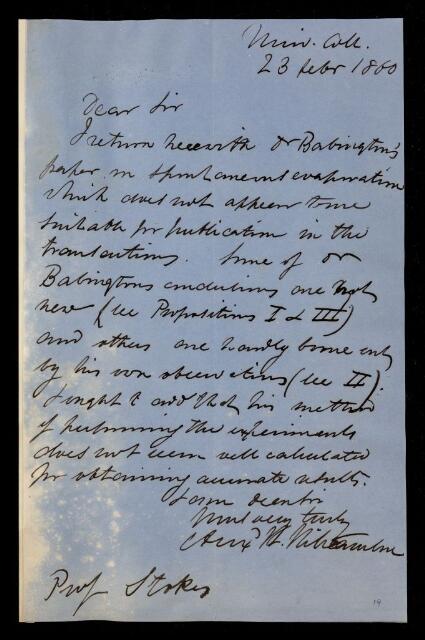 Univ. Coll.
23 Febr 1860
Dear Sir
I return herewith Dr Babington's
paper on spontaneous evaporation
which does not appear to me
suitable for publication in the
transactions. Some of Dr
Babingtons conclusions are not
new (see Propositions I & III)
and others are hardly borne out
by his own observations (see II).
I ought to add that his method
of performing the experiments
does not seem well calculated
for obtaining accurate results.
I am dear Sir
Yours very truly
Alexr W. Williamson
Prof Stokes
19